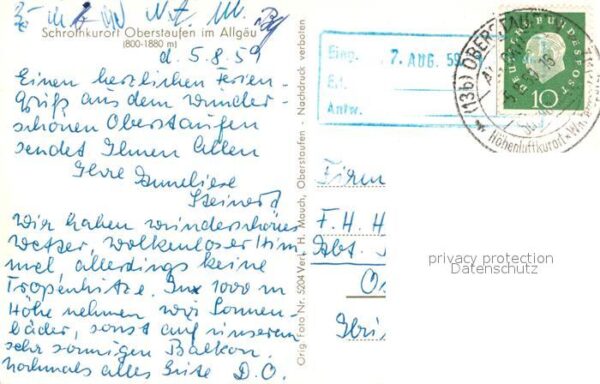 Schrothkurort Oberstaufen im Allgäu
(800-1880 m)
d. 5.8.59
Einen herzlichen Ferien-
gruß aus dem wunder-
schönen Oberstaufen
sendet Ihnen Allen
Ihre Anneliese
Wir haben wunderschönes
Wetter, wolkenloser Him-
mel, allerdings keine
Tropenhitze. In 1000 m
Höhe nehmen wir Sonnen-
bäder, sonst auf unserem
sehr sonnigen Balkon.
Nochmals alles Gute D.O.
Orig. Foto Nr. 5204 Verl. H. Mauch, Oberstaufen - Nachdruck verboten
Eing. 7. AUG. 59
Erl.
Antw.
DEUTSCHE BUNDESPOST
10
(13b) OBERSTAUFEN
Höhenluftkurort
Firm
F. H. H
Abt.
privacy protection
Datenschutz